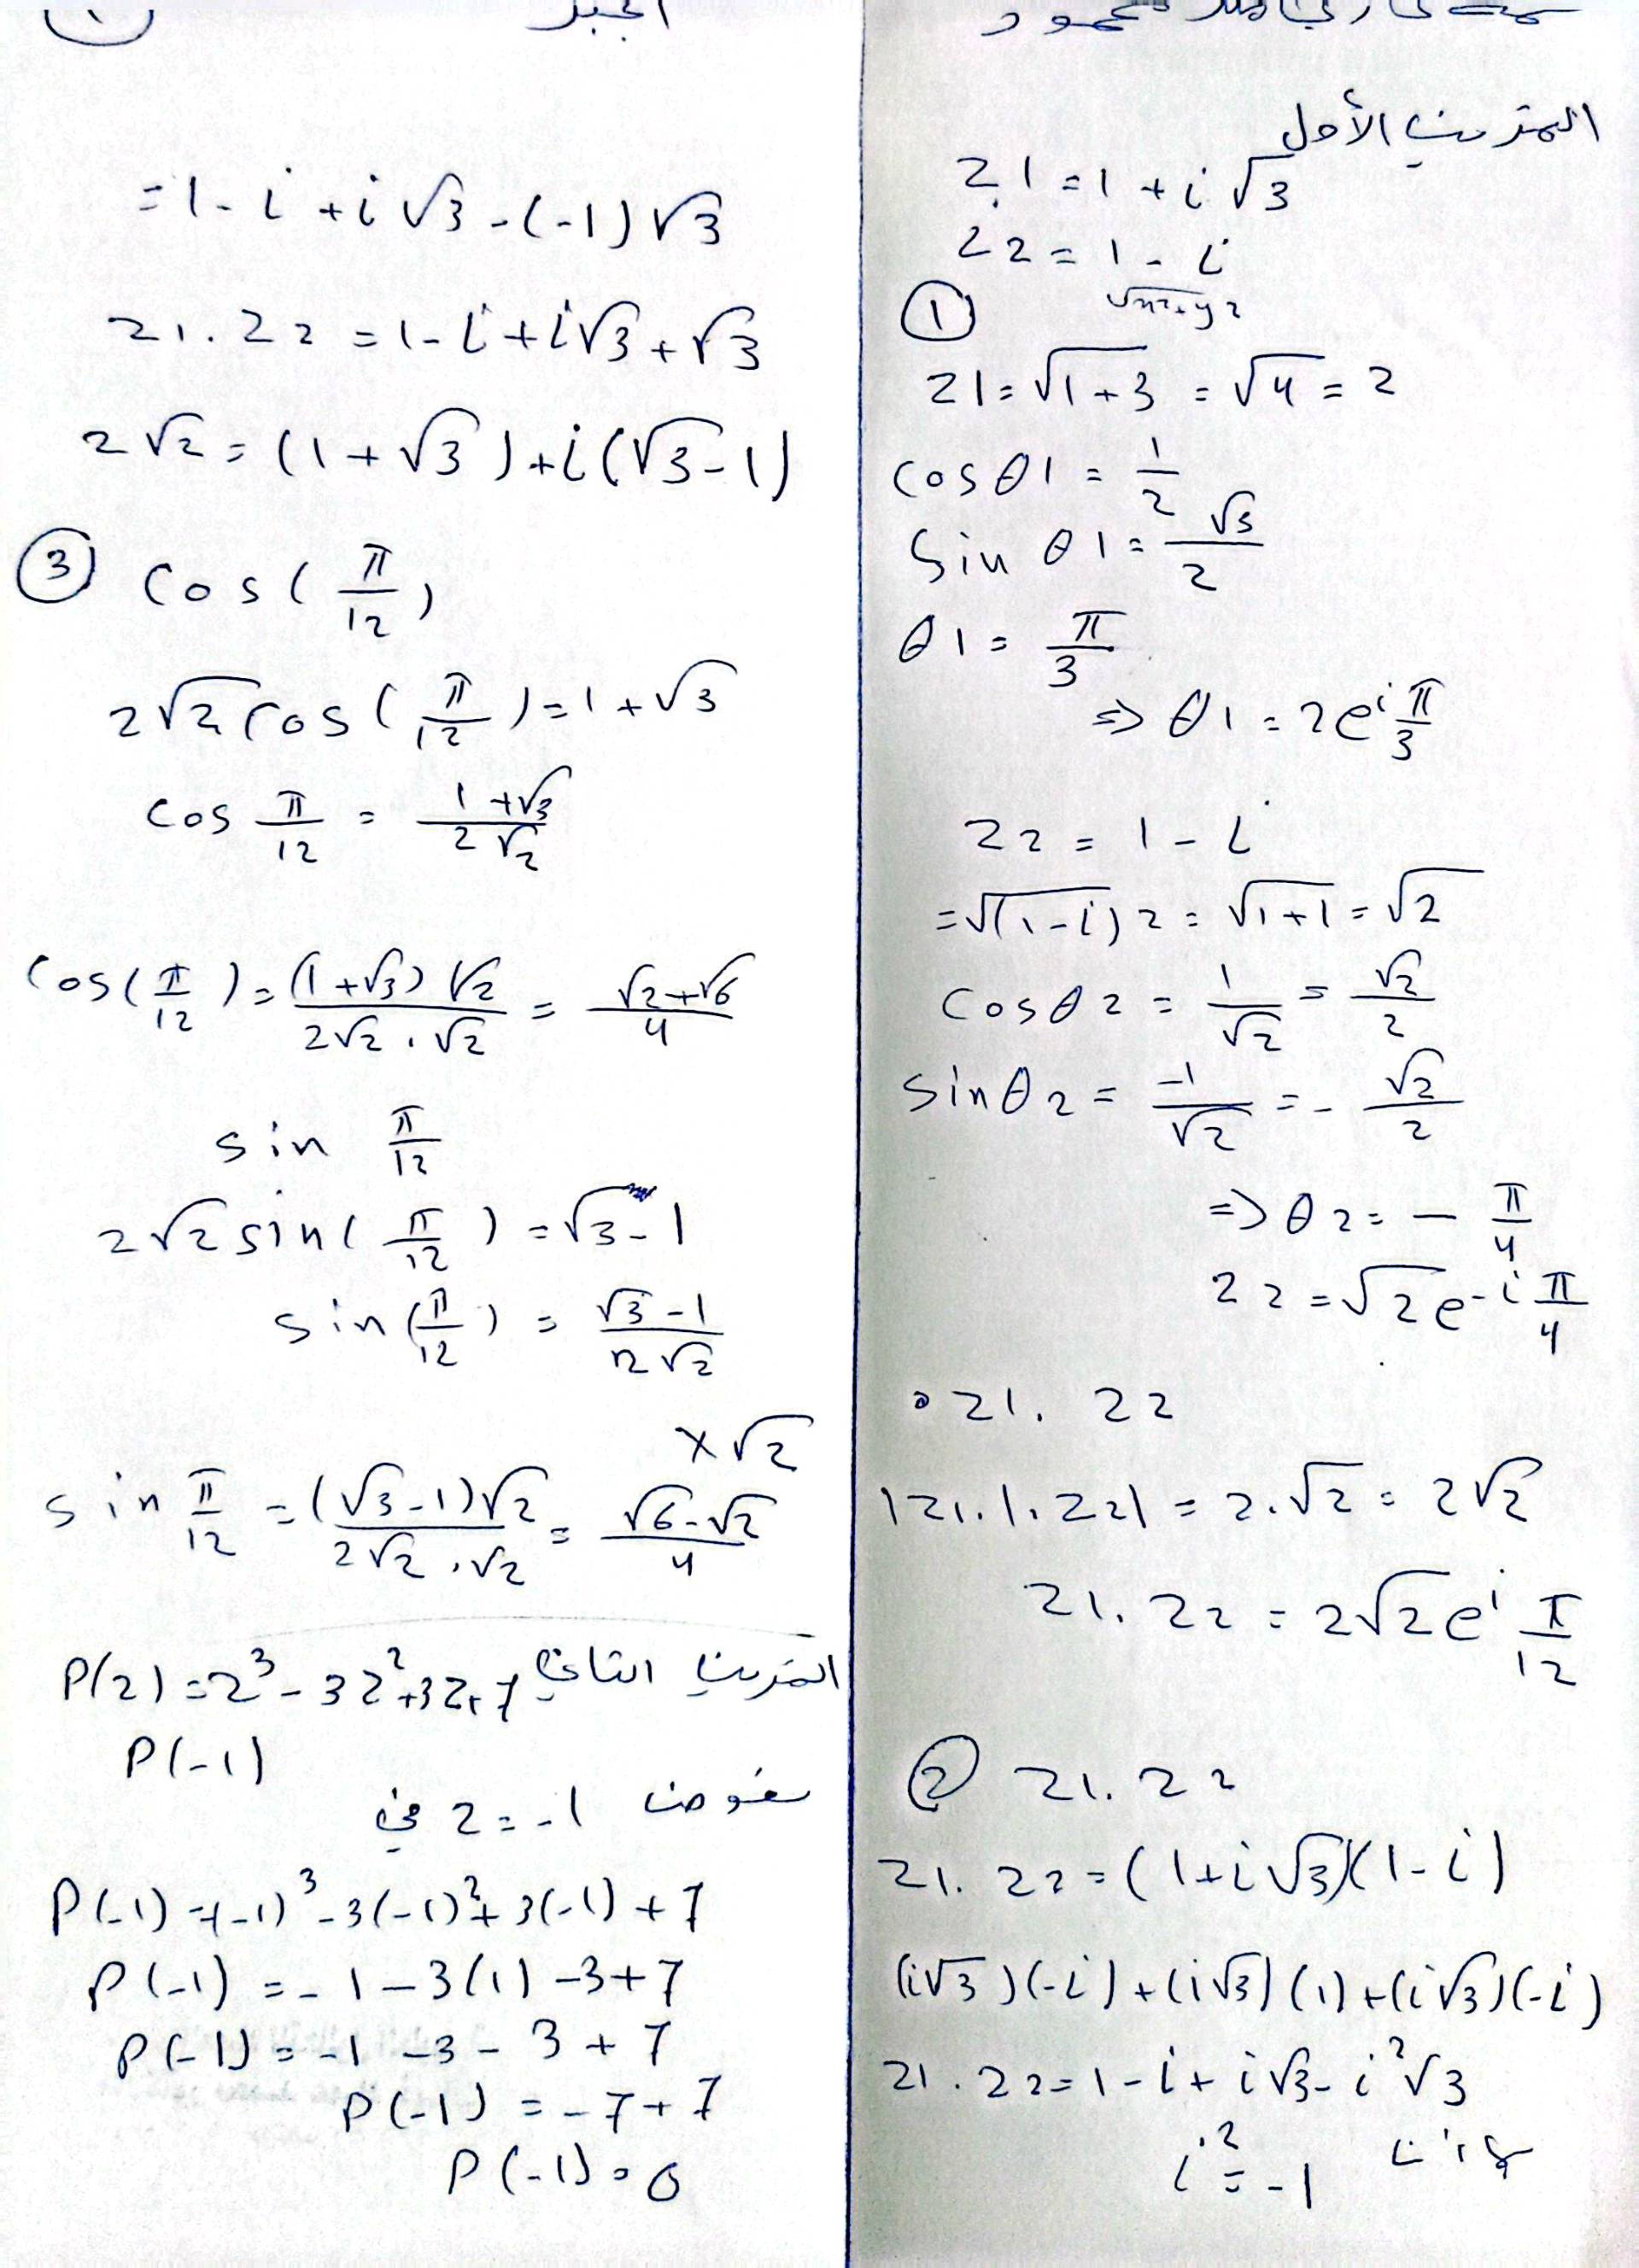 الجبر
التمرين الأول
z1 = 1 + i√3
z2 = 1 - i
√x²+y²
①
z1 = √1+3 = √4 = 2
cos θ1 = 1/2
sin θ1 = √3/2
θ1 = π/3
=> θ1 = 2e^i π/3
z2 = 1 - i
= √(1-i)2 = √1+1 = √2
cos θ2 = 1/√2 = √2/2
sin θ2 = -1/√2 = - √2/2
=> θ2 = - π/4
z2 = √2 e^-i π/4
• z1. z2
|z1.|.z2| = 2.√2 = 2√2
z1. z2 = 2√2 e^i π/12
② z1. z2
z1. z2 = (1+i√3)(1-i)
(i√3)(-i)+(i√3)(1)+(i√3)(-i)
z1. z2 = 1-i+i√3-i²√3
i² = -1
= 1-i+i√3-(-1)√3
z1. z2 = 1-i+i√3+√3
2√2 = (1+√3)+i(√3-1)
③ cos(π/12)
2√2 cos(π/12) = 1+√3
cos π/12 = 1+√3/2√2
cos(π/12) = (1+√3)√2/2√2.√2 = √2+√6/4
sin π/12
2√2 sin(π/12) = √3-1
sin(π/12) = √3-1/2√2
×√2
sin π/12 = (√3-1)√2/2√2.√2 = √6-√2/4
التمرين الثاني P(z) = z³-3z²+3z+7
P(-1)
نعوض z=-1 في
P(-1) = (-1)³-3(-1)²+3(-1)+7
P(-1) = -1-3(1)-3+7
P(-1) = -1-3-3+7
P(-1) = -7+7
P(-1) = 0